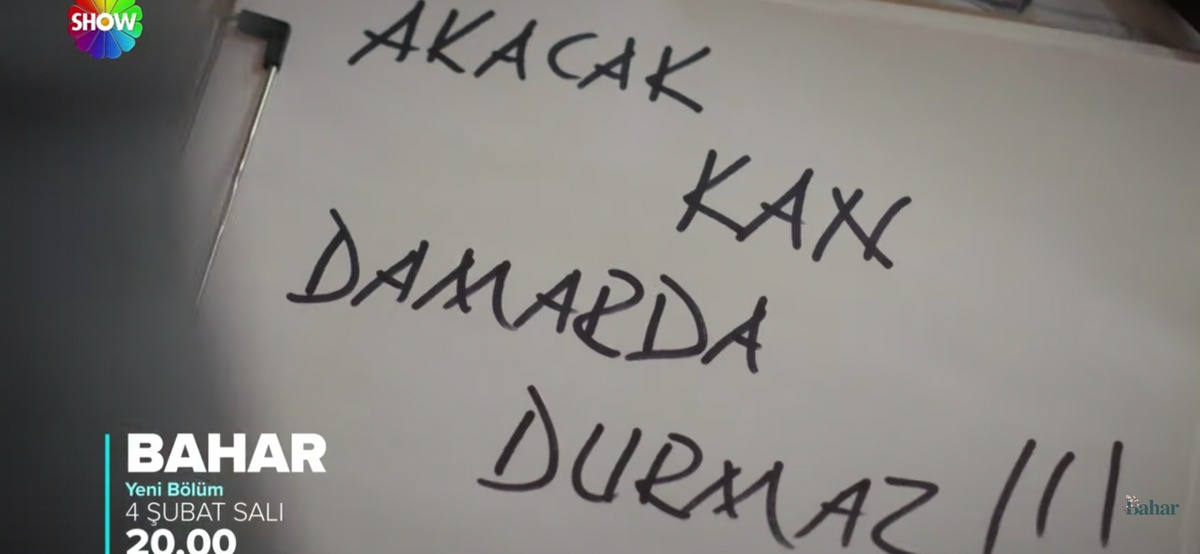 SHOW
AKACAK
KAN
DAMARDA
DURMAZ !!!
BAHAR
Yeni Bölüm
4 ŞUBAT SALI
20.00
Bahar